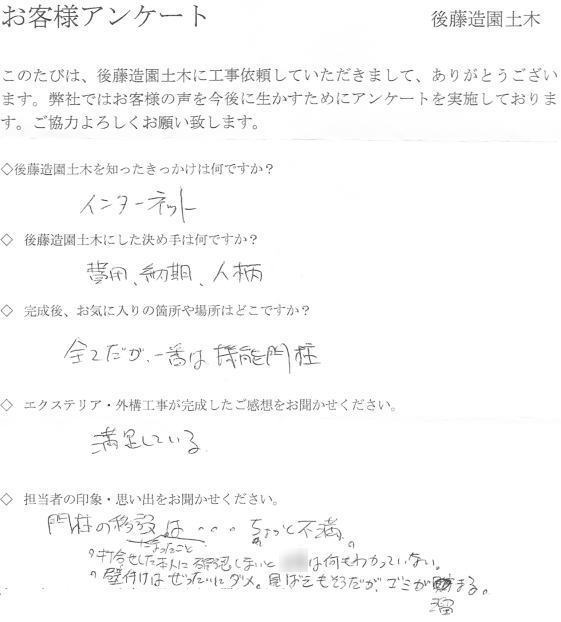 お客様アンケート
後藤造園土木
このたびは、後藤造園土木に工事依頼していただきまして、ありがとうござい
ます。弊社ではお客様の声を今後に生かすためにアンケートを実施しておりま
す。ご協力よろしくお願い致します。
◇後藤造園土木を知ったきっかけは何ですか？
インターネット
◇ 後藤造園土木にした決め手は何ですか？
費用、納期、人柄
◇ 完成後、お気に入りの箇所や場所はどこですか？
全てだが、一番は機能門柱
◇ エクステリア・外構工事が完成したご感想をお聞かせください。
満足している
◇ 担当者の印象・思い出をお聞かせください。
門柱の移設は・・・ちょっと不満。
になったこと
打合せした本人に確認しないと は何もわかっていない。
壁付けはぜったいにダメ。見ばえもそうだが、ゴミが まる。
溜